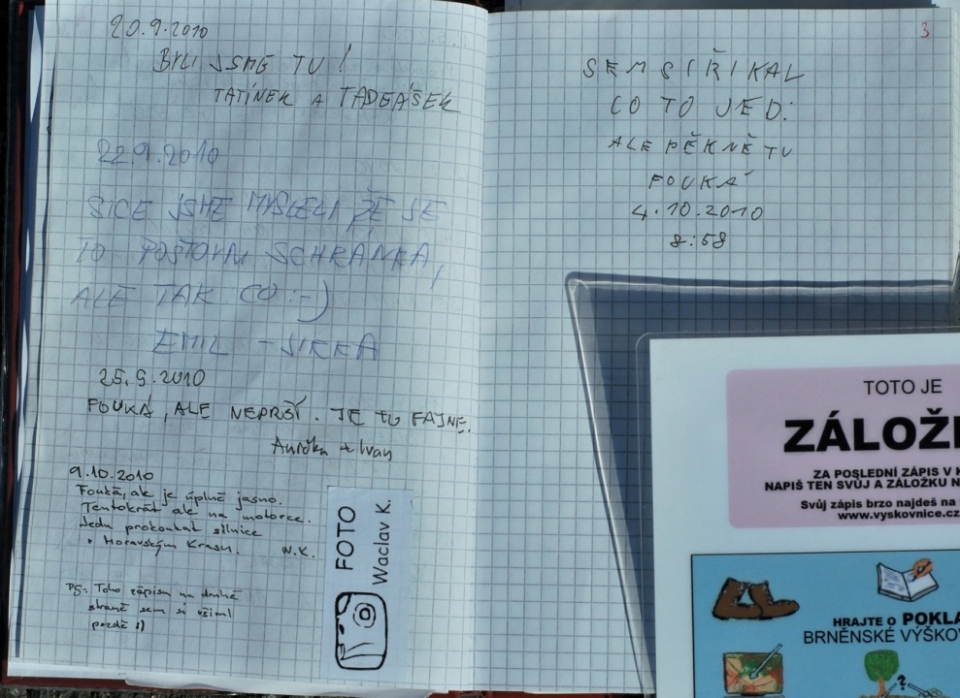 20.9.2010
BYLI JSME TU!
TATÍNEK A TADEÁŠEK
22.9.2010
SICE JSME MYSLELI ŽE JE
TO POŠTOVNÍ SCHRÁNKA,
ALE TAK CO :-)
EMIL - JIRKA
25.9.2010
FOUKÁ, ALE NEPRŠÍ. JE TU FAJNE.
+ Ivan
9.10.2010
Fouká, ale je úplně jasno.
Tentokrát ale na motorce.
Jedu prokoukat silnice
v Moravským Krasu. W.K.
PS: Toho zápisu na druhé
straně sem si všiml
pozdě :)
FOTO
Waclav K.
3
SEM SI ŘÍKAL
CO TO JED:
ALE PĚKNĚ TU
FOUKÁ
4.10.2010
8:58
TOTO JE
ZÁLOŽ
ZA POSLEDNÍ ZÁPIS V K
NAPIŠ TEN SVŮJ A ZÁLOŽKU N
Svůj zápis brzo najdeš na
www.vyskovnice.cz
HRAJTE O POKLA
BRNĚNSKÉ VÝŠKOV
?